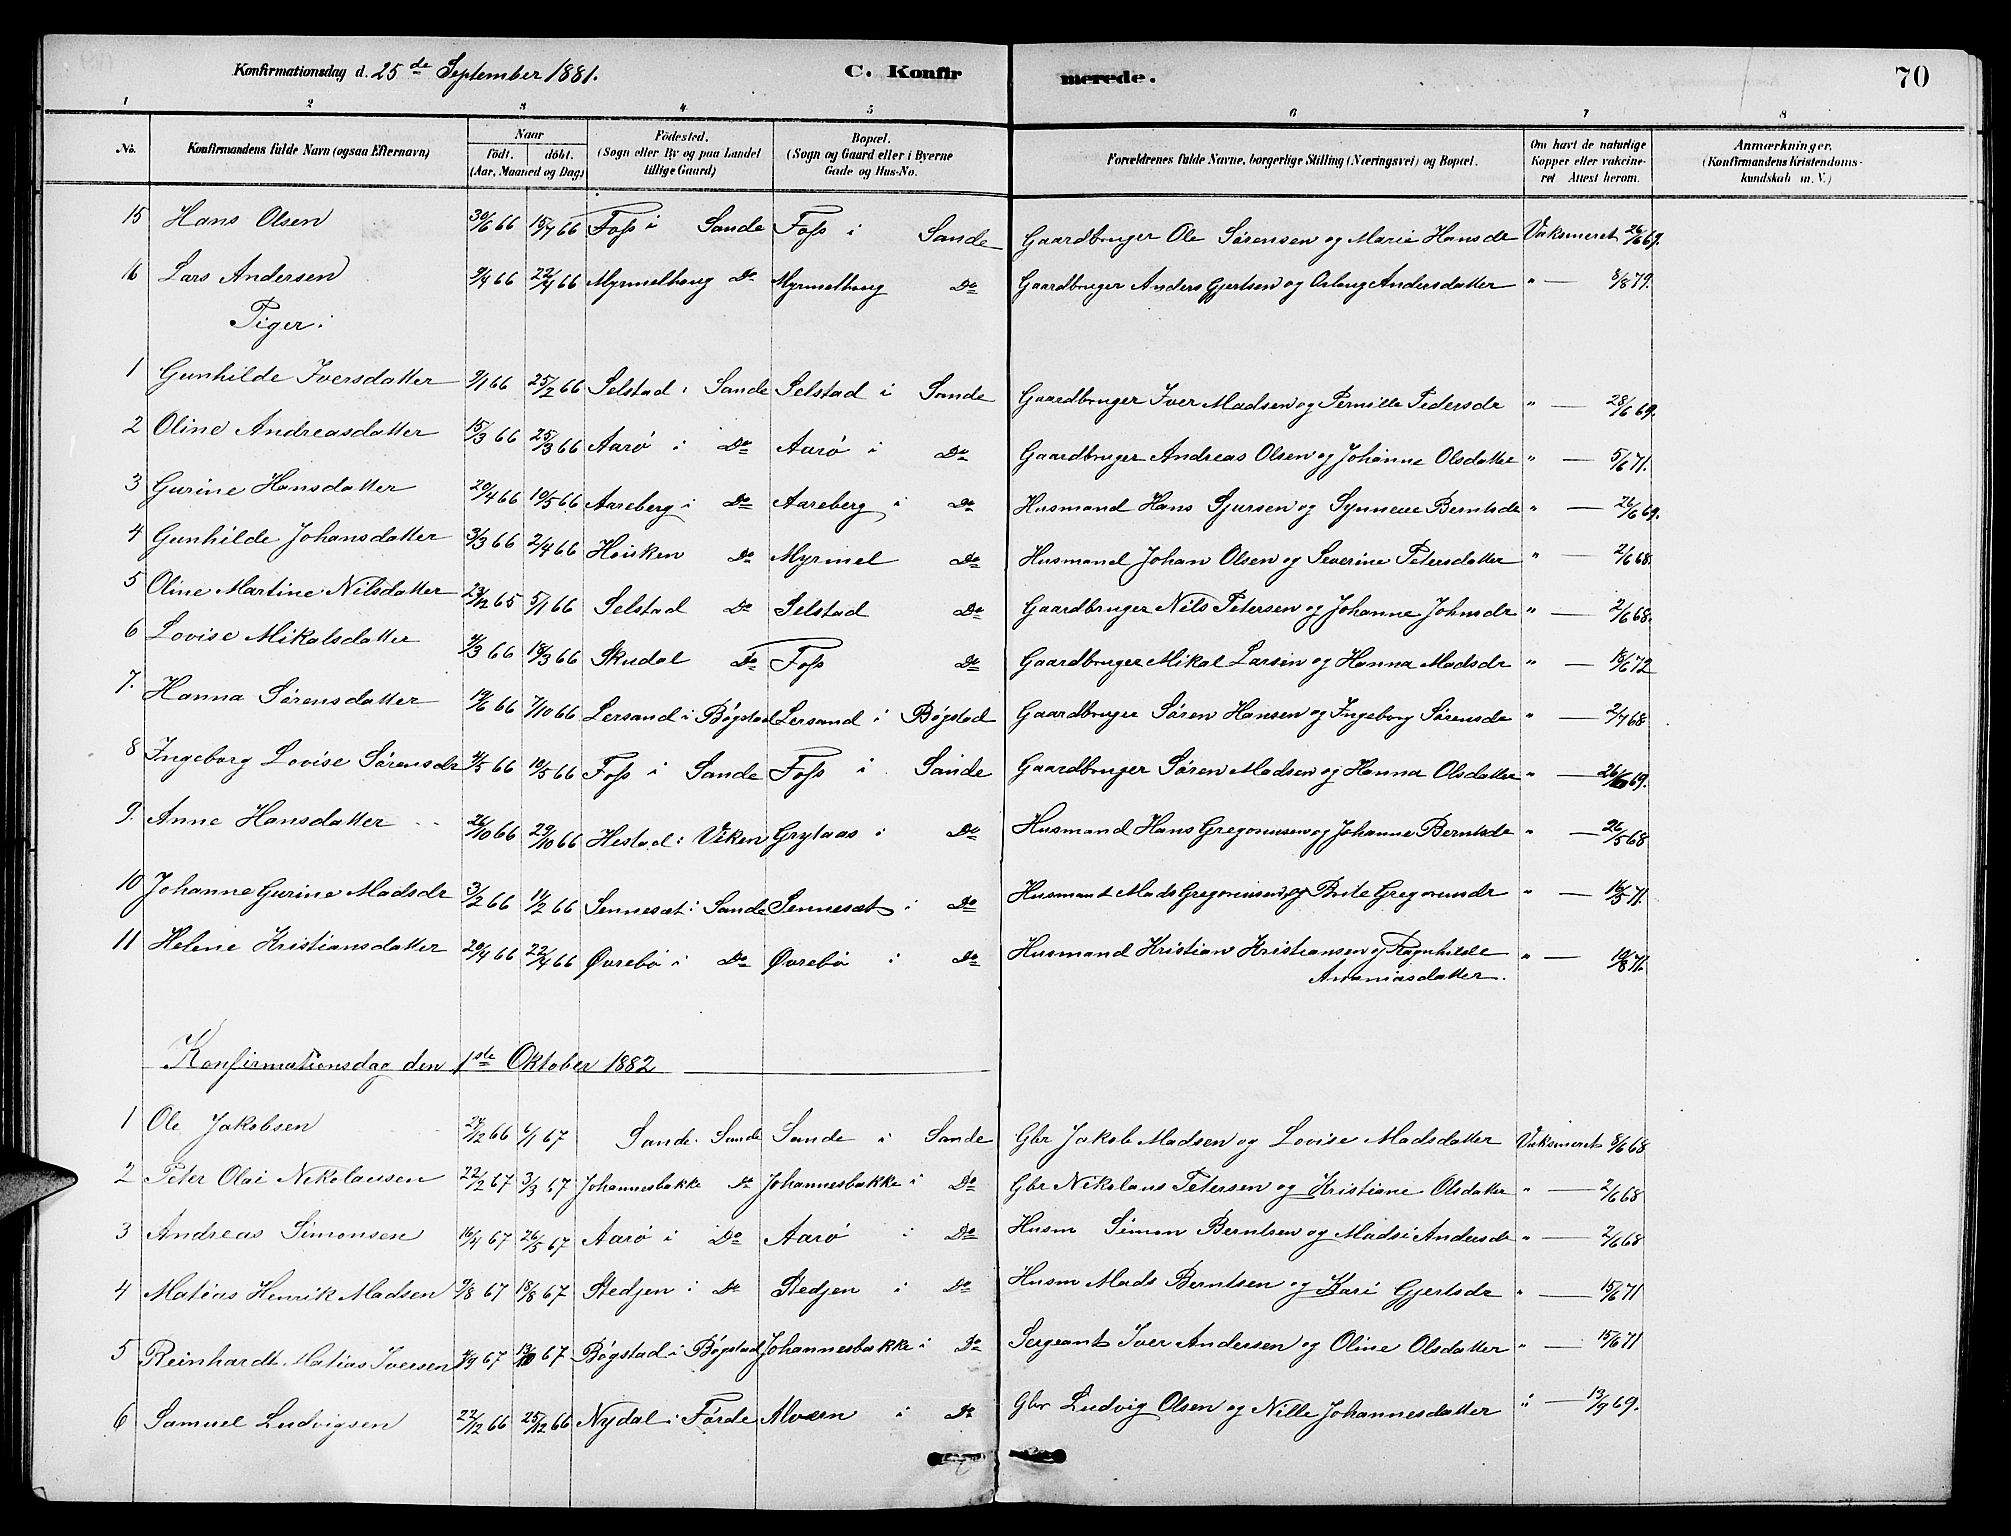 Konfirmationsdag d. 25de September 1881. C. Konfirmerede. 70
1 2 3 4 5 6 7 8
No. Konfirmandens fulde Navn (ogsaa Efternavn) Naar födt. döbt. (Aar, Maaned og Dag) Födested. (Sogn eller By og paa Landet tillige Gaard) Bopæl. (Sogn og Gaard eller i Byerne Gade og Hus-No. Forældrenes fulde Navne, borgerlige Stilling (Næringsvei) og Bopæl. Om havt de naturlige Kopper eller vakcineret Attest herom. Anmærkninger. (Konfirmandens Kristendomskundskab m. V.)
15 Hans Olsen 30/6 66 15/7 66 Foss i Sande Foss i Sande Gaardbruger Ole Sørensen og Marie Hansdr Vaksineret 26/6 69.
16 Lars Andersen 9/4 66 22/4 66 Myrmelhaug Do Myrmelhaug Do Gaardbruger Anders Gjertsen og Oslaug Andersdatter " — 8/8 79.
Piger:
1 Gunhilde Iversdatter 9/1 66 25/2 66 Selstad i Sande Selstad i Sande Gaardbruger Iver Madsen og Pernille Pedersdr " — 28/6 69.
2 Oline Andreasdatter 15/3 66 25/3 66 Aarø i Do Aarø i Do Gaardbruger Andreas Olsen og Johanne Olsdatter " — 5/6 71.
3 Gurine Hansdatter 20/4 66 10/5 66 Aareberg i Do Aareberg i Do Husmand Hans Sjursen og Synneve Berntsdr " — 26/6 69.
4 Gunhilde Johansdatter 3/3 66 2/4 66 Hoisken Do Myrmel Do Husmand Johan Olsen og Severine Petersdatter " — 2/6 68
5 Oline Martine Nilsdatter 23/12 65 5/1 66 Selstad Do Selstad Do Gaardbruger Nils Petersen og Johanne Johnsdr " — 2/6 68.
6 Lovise Mikalsdatter 4/3 66 18/3 66 Skudal Do Foss Do Gaardbruger Mikal Larsen og Hanna Madsdr " — 18/6 72
7. Hanna Sørensdatter 19/6 66 7/10 66 Lersand i Bøgstad Lersand i Bøgstad Gaardbruger Søren Hansen og Ingeborg Sørensdr " — 2/7 68
8 Ingeborg Lovise Sørensdr 4/5 66 10/5 66 Foss i Sande Foss i Sande Gaardbruger Søren Madsen og Hanna Olsdatter " — 26/6 69.
9. Anne Hansdatter 26/10 66 29/10 66 Hestad i Viken Grytaas i Do Husmand Hans Gregoriusen og Johanne Berntsdr " — 26/5 68
10 Johanne Gurine Madsdr 3/2 66 11/2 66 Sennesæt i Sande Sennesæt i Do Husmand Mads Gregoriusen og Brite Gregoriusdr " — 16/5 71.
11 Helene Kristiansdatter 20/4 66 22/4 66 Øvrebø i Do Øvrebø i Do Husmand Kristian Kristiansen og Ragnhilde " — 10/8 71.
Ananiasdatter.
Konfirmationsdag den 1ste Oktober 1882
1 Ole Jakobsen 27/12 66 6/1 67 Sande i Sande Sande i Sande Gbr Jakob Madsen og Lovise Madsdatter Vaksineret 8/6 68
2 Peter Olai Nikolausen 22/2 67 3/3 67 Johannesbakke Do Johannesbakke i Do Gbr Nikolaus Petersen og Kristiane Olsdatter " — 2/6 68
3 Andreas Simonsen 16/4 67 26/5 67 Aarø i Do Aarø i Do Husm Simon Berntsen og Madsi Andersdr " — 2/6 68
4 Matias Henrik Madsen 9/8 67 18/8 67 Stedjen i Do Stedjen i Do Husm Mads Berntsen og Kari Gjertsdr " — 15/6 71
5 Reinhardt Matias Iversen 4/9 67 13/10 67 Bøgstad i Bøgstad Johannesbakke i Do Sergeant Iver Andersen og Oline Olsdatter " — 15/6 71
6 Samuel Ludvigsen 22/12 66 25/12 66 Nydal i Førde Alværn i Do Gbr Ludvig Olsen og Nille Johannesdatter " — 13/9 69.